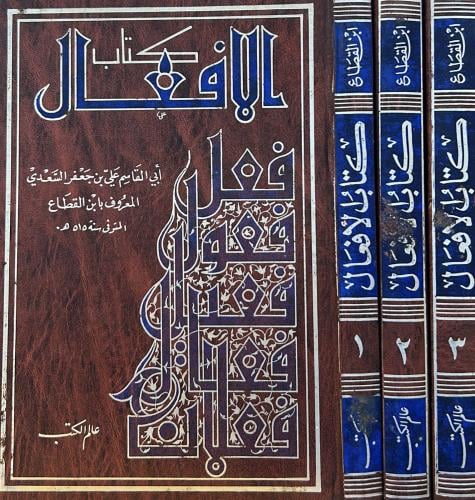 كتاب
الأفعال
أبي القاسم علي بن جعفر السعدي
المعروف بابن القطاع
المتوفى سنة ٥١٥ هـ
فعل
فعول
فعلان
عالم الكتب
ابن القطاع
كتاب الأفعال
١
عالم الكتب
ابن القطاع
كتاب الأفعال
٢
عالم الكتب
ابن القطاع
كتاب الأفعال
٣
عالم الكتب